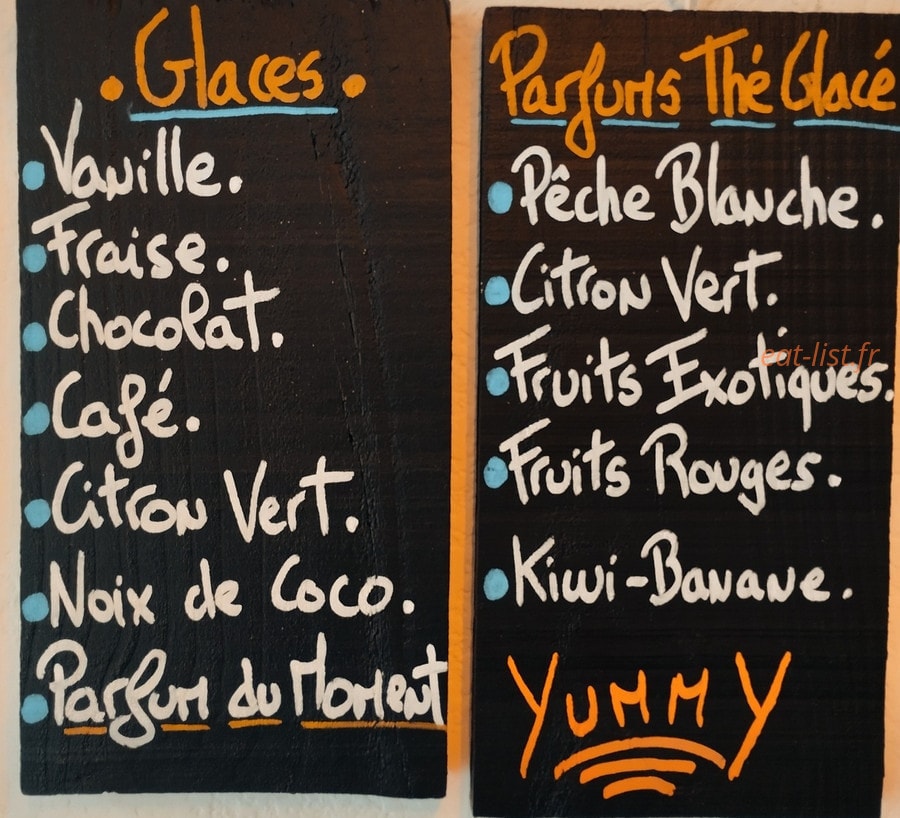 . Glaces .
Vanille.
Fraise.
Chocolat.
Café.
Citron Vert.
Noix de Coco.
Parfum du Moment
Parfums Thé Glacé
Pêche Blanche.
Citron Vert.
Fruits Exotiques.
eat-list.fr
Fruits Rouges.
Kiwi-Banane.
YUMMY